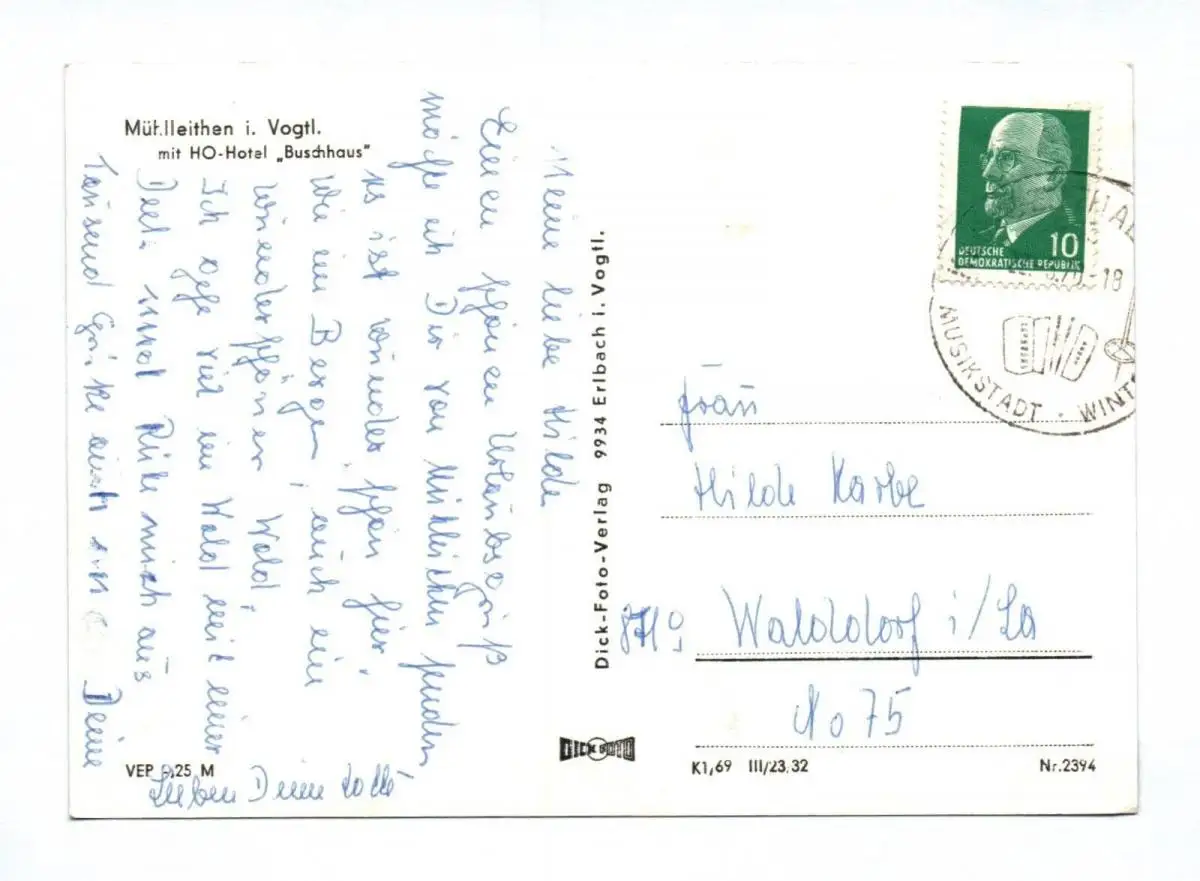 Mühlleithen i. Vogtl.
mit HO-Hotel „Buschhaus"
Meine liebe Hilde
Einen schönen Urlaubsgruß
möchte ich Dir von senden
es ist wunderschön hier,
Wie im Bergen, auch ein
wunderschöner Wald,
Ich gehe viel im Wald mit einer
und Ruhe mich aus
Tausend Grüße auch von Deine
Lieben Deine Lotte
VEP -,25 M
Dick-Foto-Verlag 9934 Erlbach i. Vogtl.
DICK FOTO
10
DEUTSCHE
DEMOKRATISCHE REPUBLIK
-18
MUSIKSTADT · WINT
Frau
Hilde Karbe
8710
Walddorf i/Sa
No 75
K1/69 III/23,32
Nr.2394